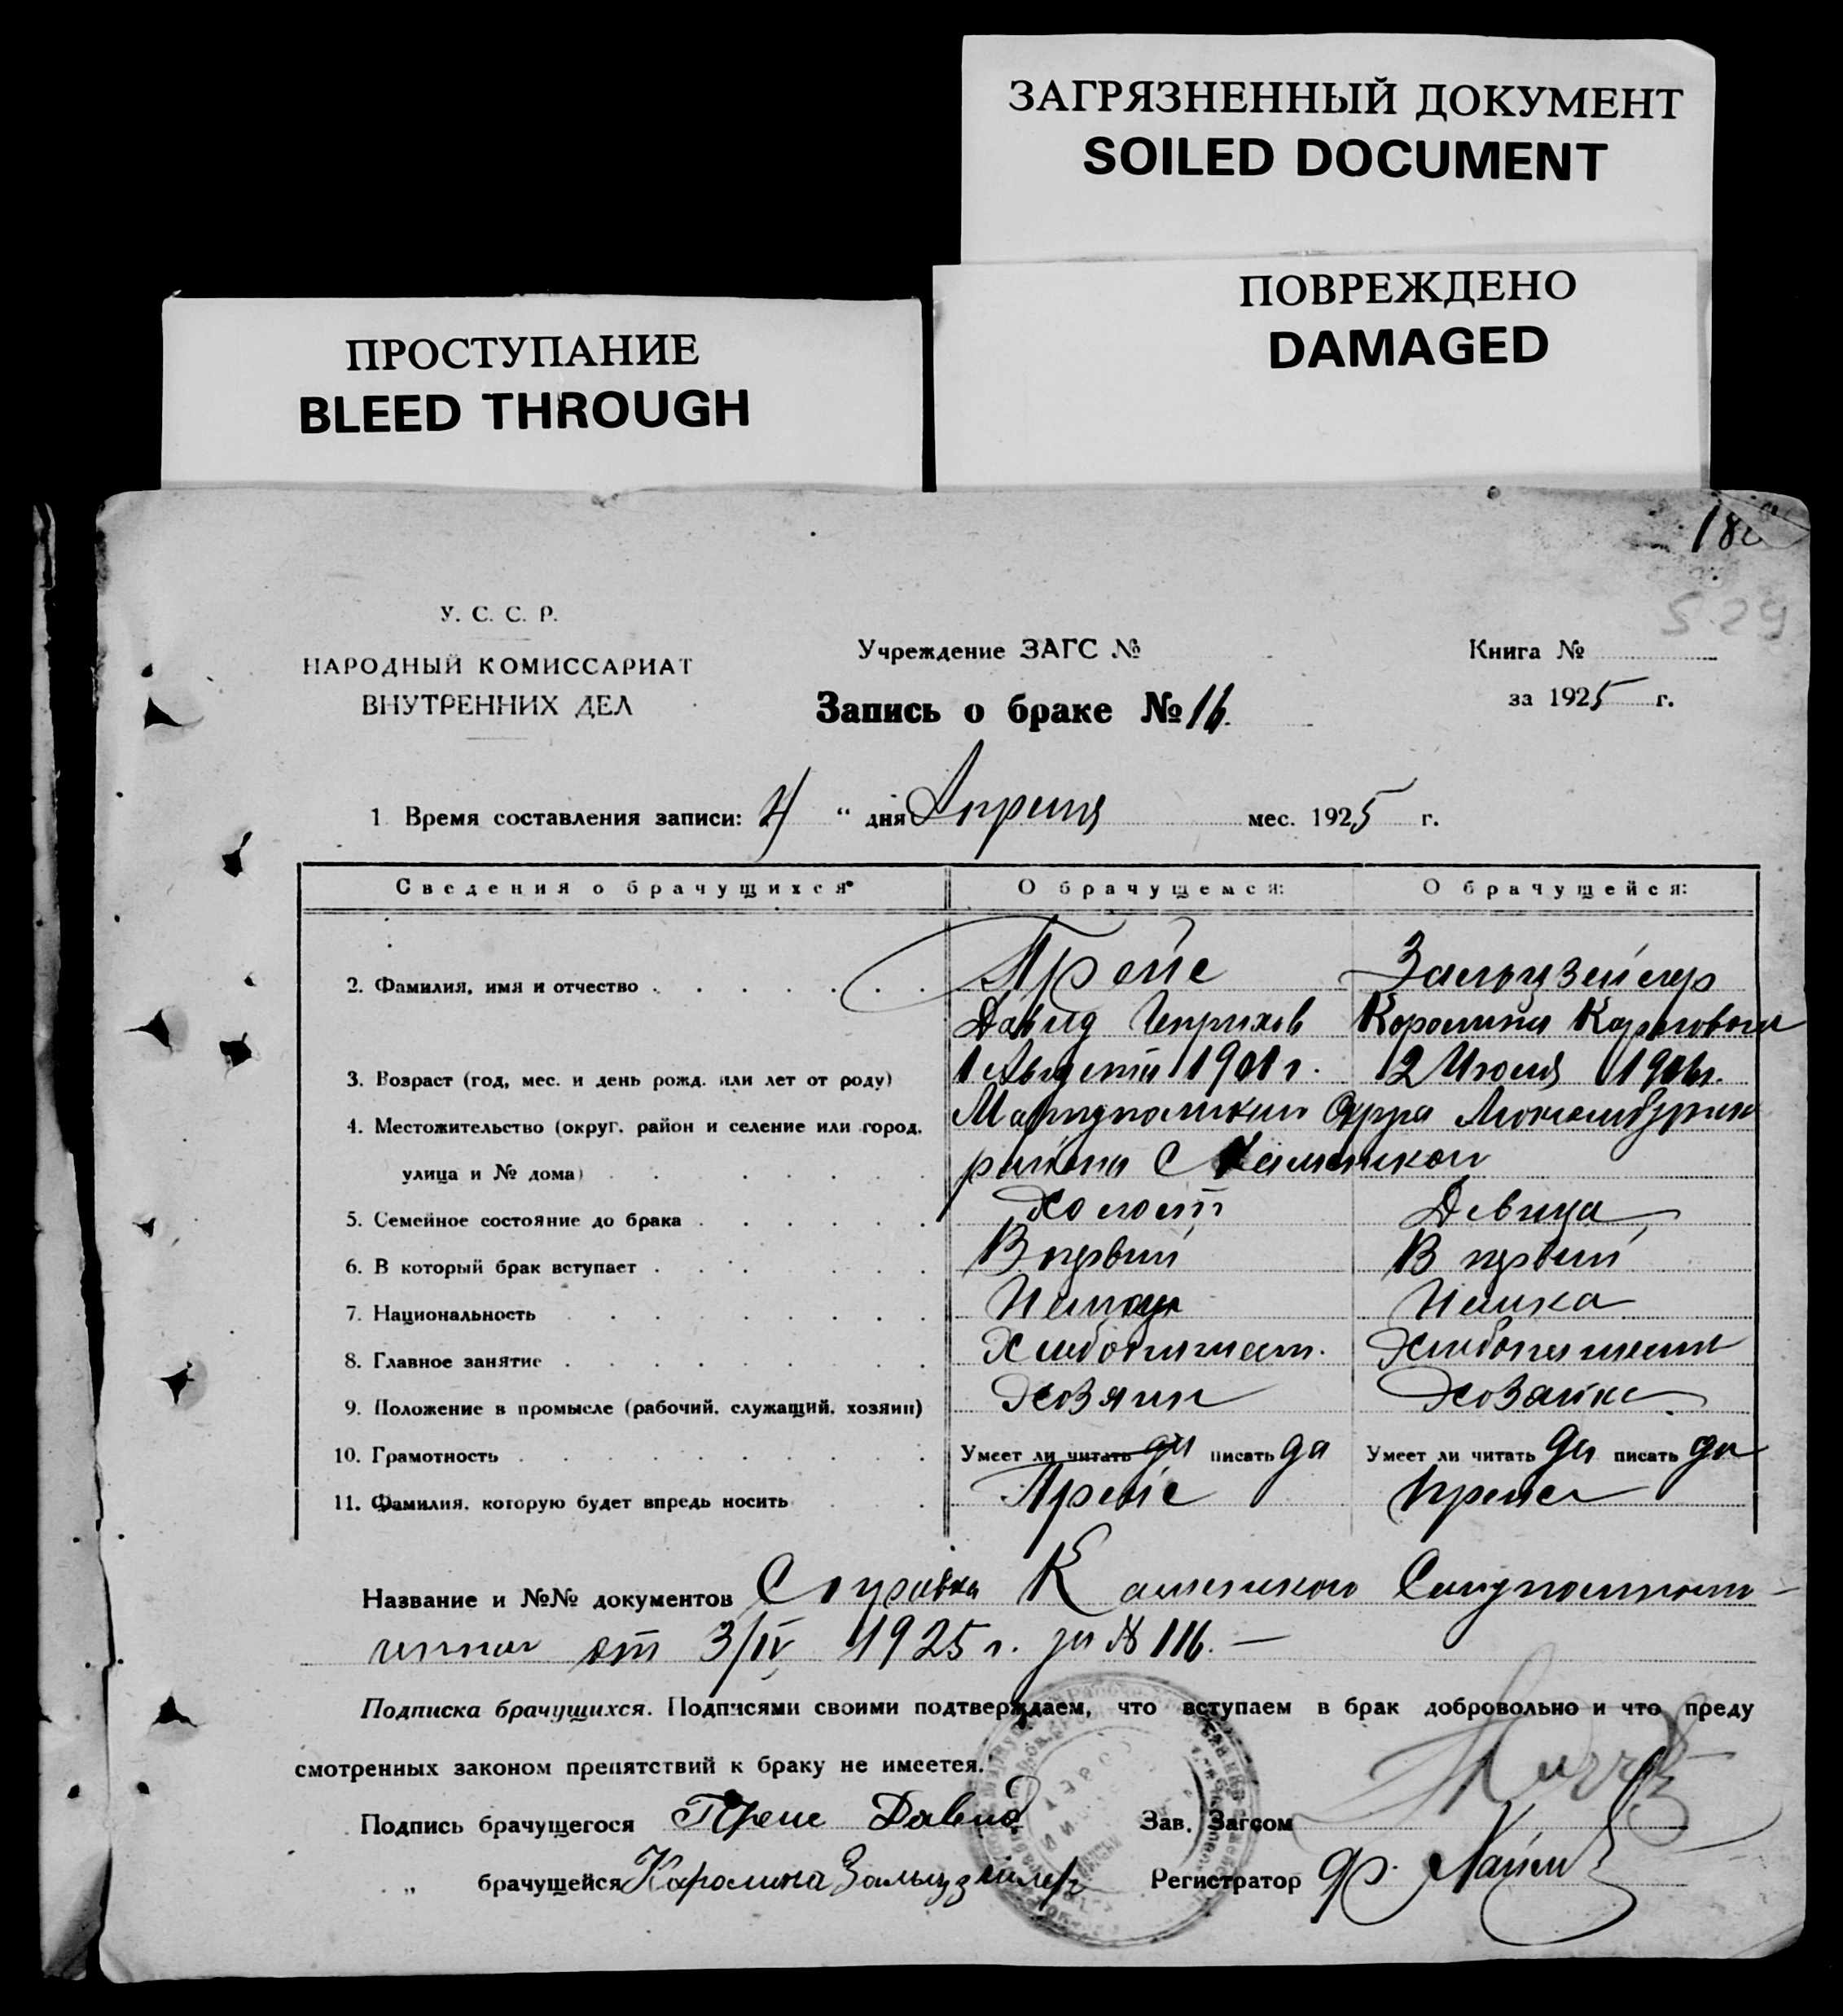 ЗАГРЯЗНЕННЫЙ ДОКУМЕНТ
SOILED DOCUMENT
ПОВРЕЖДЕНО
DAMAGED
ПРОСТУПАНИЕ
BLEED THROUGH
S 29
У. С. С. Р.
НАРОДНЫЙ КОМИССАРИАТ
ВНУТРЕННИХ ДЕЛ
Учреждение ЗАГС №
Книга №
Запись о браке № 16.
за 1925 г.
1 Время составления записи: 4 “ дня Апреля мес. 1925 г.
Сведения о брачущихся О брачущемся: О брачущейся:
2. Фамилия, имя и отчество Прейс Зальцзейлер
Давид Генрихов Королина Карловна
3. Возраст (год, мес. и день рожд. или лет от роду) 1 Августа 1901 г. 12 Июля 1906 г.
4. Местожительство (округ, район и селение или город, Мариупольский Округа Люксембургск
улица и № дома) района С Каменской
5. Семейное состояние до брака Холост Девица
6. В который брак вступает В первый В первый
7. Национальность Немец Немка
8. Главное занятие Хлебопашест. Хлебопашест
9. Положение в промысле (рабочий, служащий, хозяин) Хозяин Хозайка
10. Грамотность Умеет ли читать да писать да Умеет ли читать да писать да
11. Фамилия, которую будет впредь носить Прейс Прейс
Название и №№ документов Справка Каменского Сельуполномо-
от 3/IV 1925 г. за № 116. —
Подписка брачущихся. Подписями своими подтверждаем, что вступаем в брак добровольно и что преду
смотренных законом препятствий к браку не имеется.
Подпись брачущегося Прейс Давид Зав. Загсом
„ брачущейся Каролина Зальцзейлер Регистратор